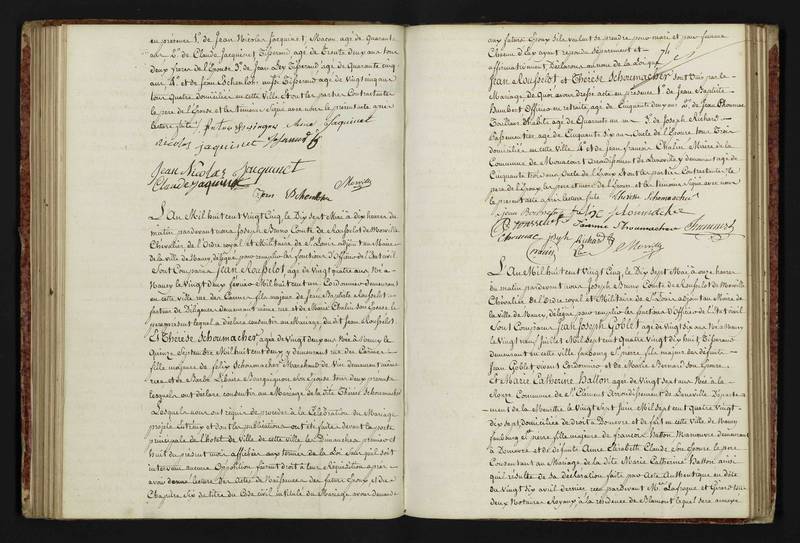 en présence 1° de Jean Nicolas Jacquinet, Macon, agé de Quarante
ans 2° de Claude Jacquinet Tisserand, agé de Trente deux ans tous
deux frères de L'Epouse 3° de Jean Tisserand agé de Quarante cinq
ans 4° et de Jean aussi Tisserand agé de Vingt cinq ans
tous Quatre domiciliés en cette Ville et ont les parties Contractantes
le père de l'Epouse et les témoins Signé avec nous le présent acte après
lecture faite
nicolas jaquinet
Jean Nicolas Jacquinet
Claude Jaquinet
Morville
L'An Mil huit cent Vingt Cinq, le Dix Sept Mai à dix heures du
matin, pardevant nous Joseph Bruno Comte de Rouflot de Morville
Chevalier de l'Ordre royal et Militaire de St Louis adjoint au Maire
de la ville de Nancy, délégué pour remplir les fonctions d'Officier de l'Etat civil
Sont Comparus Jean Rousselot agé de Vingt quatre ans Né à
Nancy le Vingt Deux février Mil huit cent un Cordonnier demeurant
en cette ville rue des Carmes fils majeur de Jean Baptiste Rousselot
facteur de Diligences demeurant même rue et de Marie Chalin son Epouse le
père présent lequel a déclaré consentir au Mariage dudit Jean Rousselot.
Et Thérèse Schoumacher agée de Vingt deux ans Née à Nancy le
Quinze Septembre Mil huit cent deux y demeurant rue des Carmes
fille majeure de felix Schoumacher Marchand de Vin demeurant même
rue et de Barbe Libaire Bourguignon son Epouse tous deux présents
lesquels ont déclaré consentir au Mariage de la dite Thérèse Schoumacher
Lesquels nous ont requis de procéder à la Célébration du Mariage
projeté entr'eux et dont les publications ont été faites devant la porte
principale de l'hotel de Ville de cette ville les Dimanches premier et
huit du présent mois affichées aux termes de la Loi sans qu'il soit
intervenu aucune Opposition faisant droit à leur Réquisition après
avoir donné lecture des Actes de Naissance des futurs Epoux et du
Chapitre six du titre du Code civil intitulé du Mariage avons demandé
aux futurs Epoux s'ils veulent se prendre pour mari et pour femme
Chacun d'Eux ayant répondu séparément et
affirmativement Déclarons au nom de la Loi que
Jean Rousselot et Thérèse Schoumacher sont Unis par le
Mariage de Quoi avons dressé acte en présence 1° de Jean Baptiste
Humbert Officier en retraite agé de Cinquante deux ans 2° de Jean Thouvenec
Tailleur d'habits agé de Quarante un ans 3° de Joseph Richard
Passementier, agé de Cinquante six ans Oncle de l'Epouse tous Trois
domiciliés en cette ville 4° et de Jean françois Chalin Maire de la
Commune de Moncourt Arrondissement de Lunéville y demeurant agé de
Cinquante trois ans Oncle de l'Epoux et ont les parties Contractantes le
père de l'Epoux, les père et mère de l'Epouse et les témoins Signé avec nous
le présent acte après lecture faite Thérèse Schoumacher
Rousselot
joseph Richard
Morville
L'An Mil huit cent Vingt Cinq, le Dix Sept Mai à onze heures
du matin pardevant nous Joseph Bruno Comte de Rouflot de Morville
Chevalier de l'Ordre royal et Militaire de St Louis adjoint au Maire de
la ville de Nancy, délégué pour remplir les fonctions d'Officier de l'Etat civil
Sont Comparus Jean Joseph Goblet agé de Vingt six ans Né à Nancy
le Vingt neuf Juillet Mil Sept cent Quatre Vingt dix huit Tisserand
demeurant en cette ville faubourg St pierre fils majeur des défunts
Jean Goblet vivant Cordonnier et de Marie Bernard son Epouse
Et Marie Catherine Hallon agée de Vingt Sept ans Née à la
Commune de St Clément Arrondissement de Lunéville Départe-
ment de la Meurthe le Vingt Sept Juin Mil Sept cent Quatre Vingt-
dix sept domiciliée de droit à Domèvre et de fait en cette Ville de Nancy
faubourg St pierre fille majeure de francois Hallon Manœuvre demeurant
à Domèvre et de défunte Anne Elizabeth Claude Son Epouse le père
Consentant au Mariage de la dite Marie Catherine Hallon ainsi
qu'il résulte de sa déclaration faite par acte Authentique en date
du Vingt six avril dernier reçu pardevant Me Lafrogne et Gérard tous
deux Notaires Royaux à la résidence de Blamont lequel sera annexé